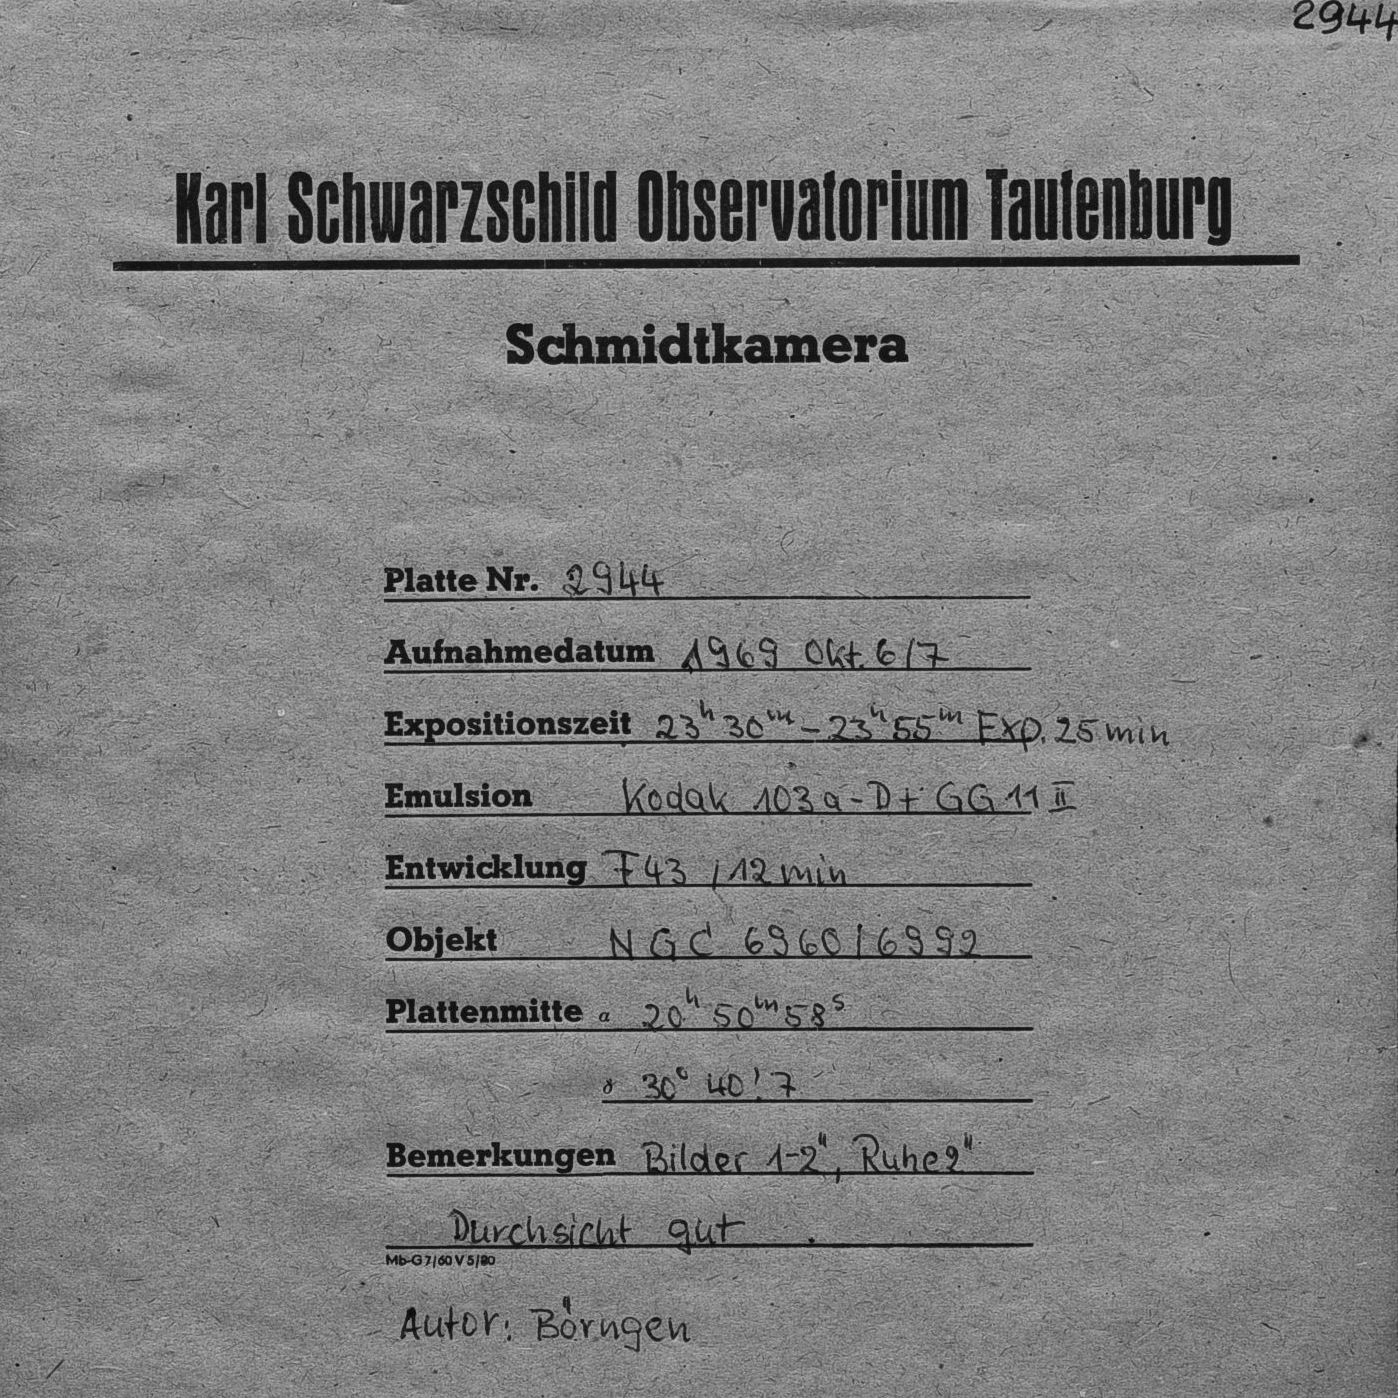 2944
Karl Schwarzschild Observatorium Tautenburg
Schmidtkamera
Platte Nr. 2944
Aufnahmedatum 1969 Okt. 6/7
Expositionszeit 23h 30m - 23h 55m Exp. 25 min
Emulsion Kodak 103 a-D + GG 11 II
Entwicklung F43 / 12 min
Objekt NGC 6960/6992
Plattenmitte α 20h 50m 58s
δ 30° 40!7
Bemerkungen Bilder 1-2", Ruhe 2"
Durchsicht gut .
Mb-G 7/60 V 5/80
Autor: Börngen